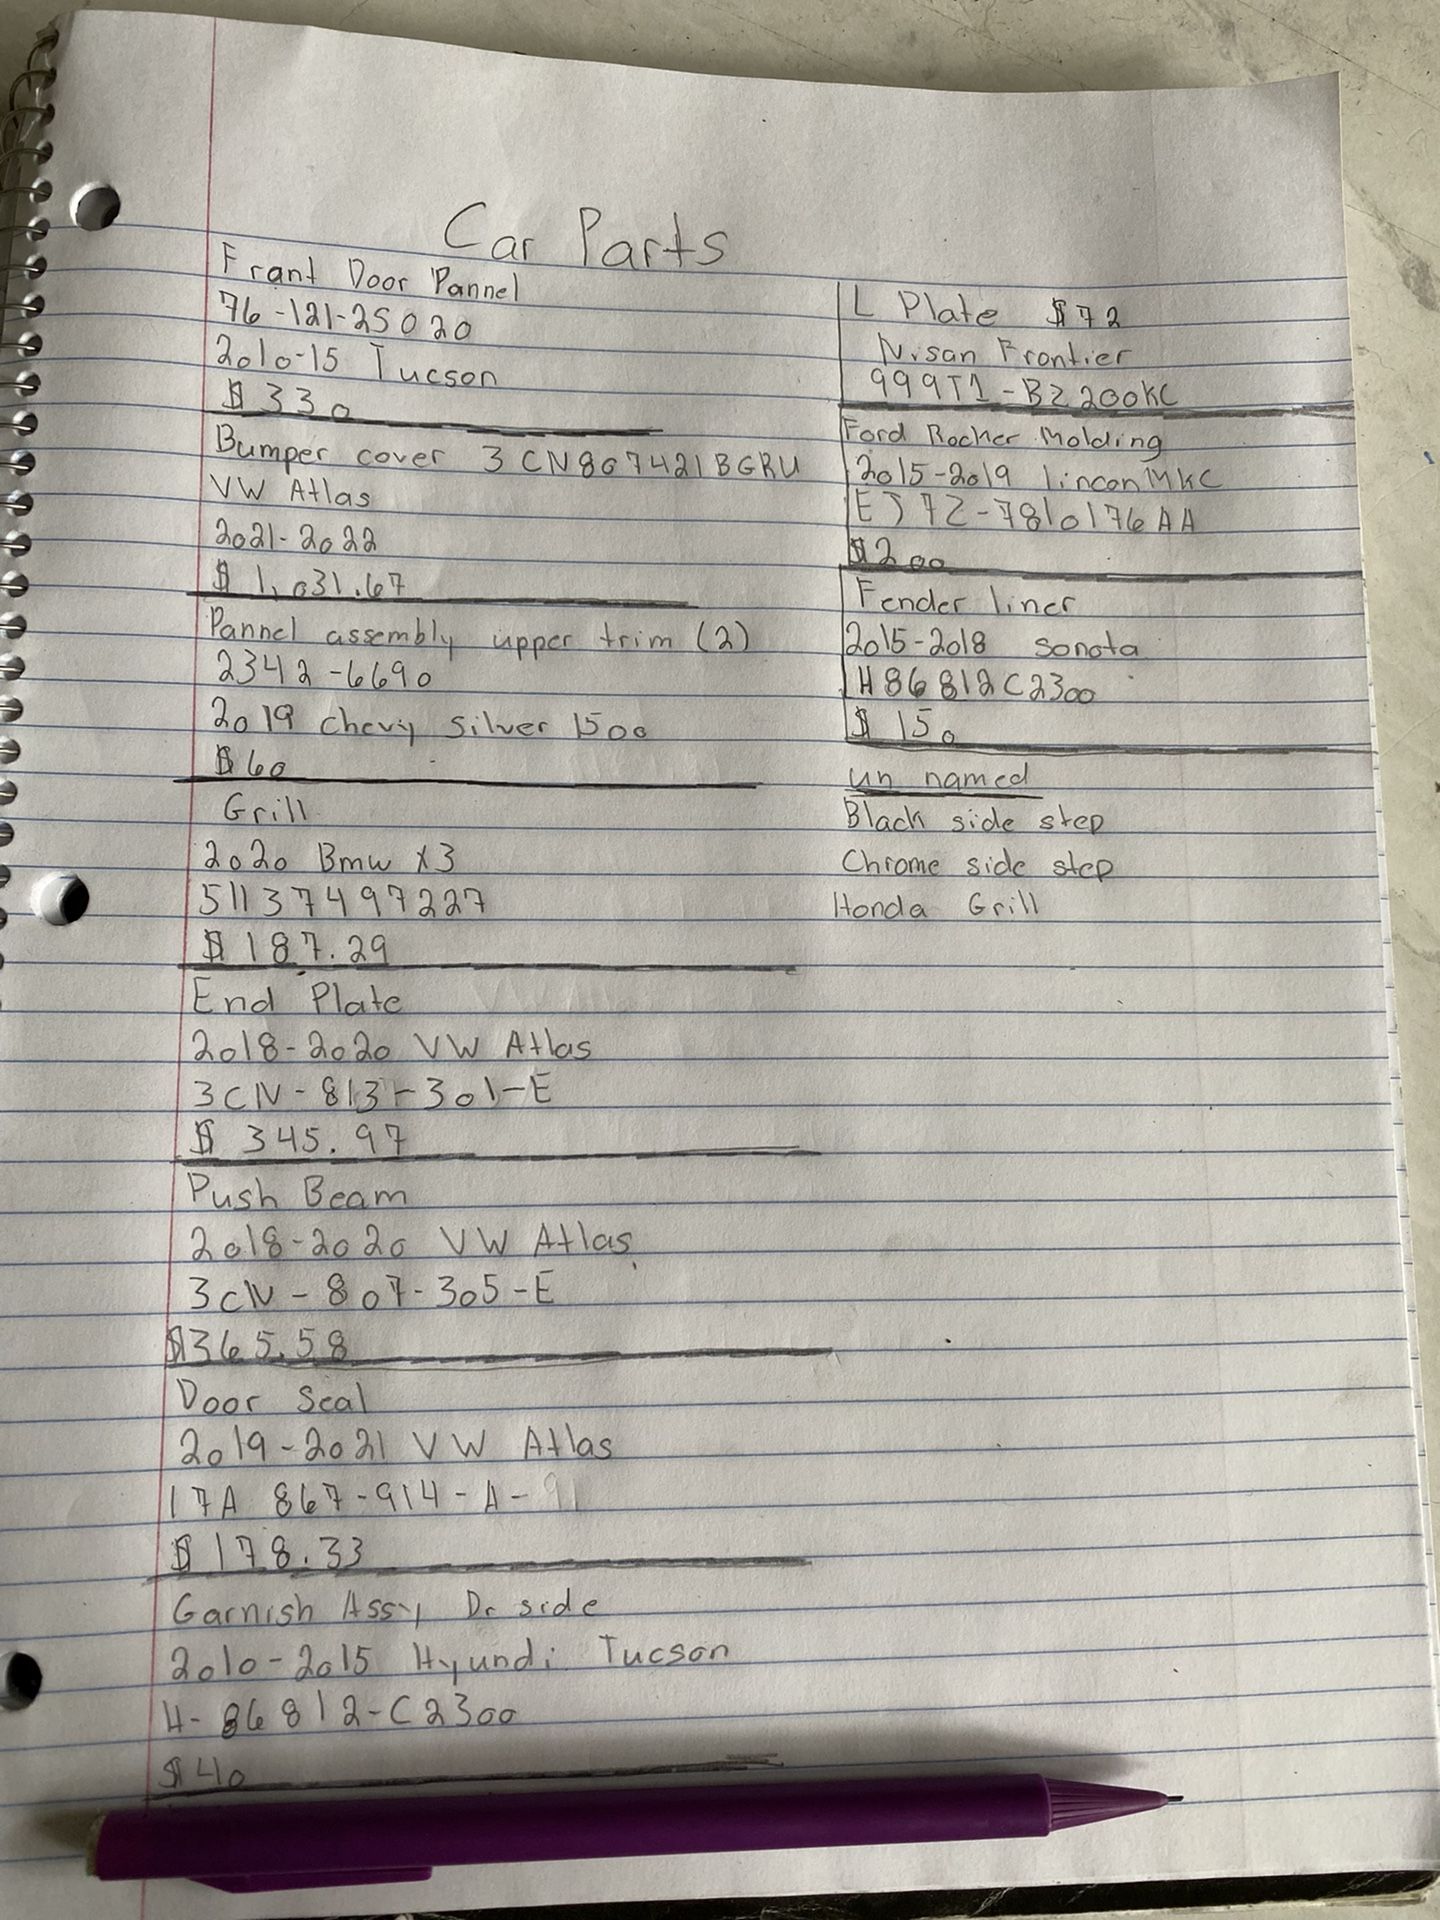 Car Parts
Frant Door Pannel
76-121-25020
2010-15 Tucson
$ 330
Bumper cover 3CN807421BGRU
VW Atlas
2021-2022
$ 1,031.67
Pannel assembly upper trim (2)
2342-6690
2019 chevy silver 1500
$60
Grill
2020 Bmw X3
51137497227
$ 187.29
End Plate
2018-2020 VW Atlas
3CN-813-301-E
$ 345.97
Push Beam
2018-2020 VW Atlas
3CN-807-305-E
$365.58
Door Seal
2019-2021 VW Atlas
17A 867-914-A-91
$ 178.33
Garnish Assy Dr side
2010-2015 Hyundi Tucson
H-86812-C2300
$40
L Plate $72
Nisan Frontier
999T1-BZ200KC
Ford Rocker Molding
2015-2019 lincon MKC
EJ7Z-7810176AA
$200
Fender liner
2015-2018 sonata
H86812C2300
$ 150
un named
Black side step
Chrome side step
Honda Grill